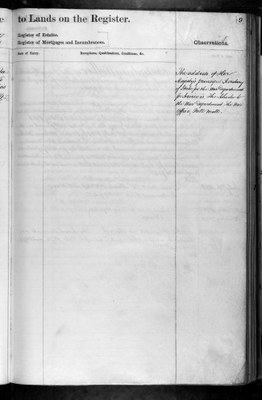 to Lands on the Register.
9
Register of Estates.
Register of Mortgages and Incumbrances.
Observations.
Date of Entry.
Exceptions, Qualifications, Conditions, &c.
The address of Her
Majesty's principal Secretary
of State for the War Department
for Service is The Solicitor to
the War Department The War
Office, Pall Mall.